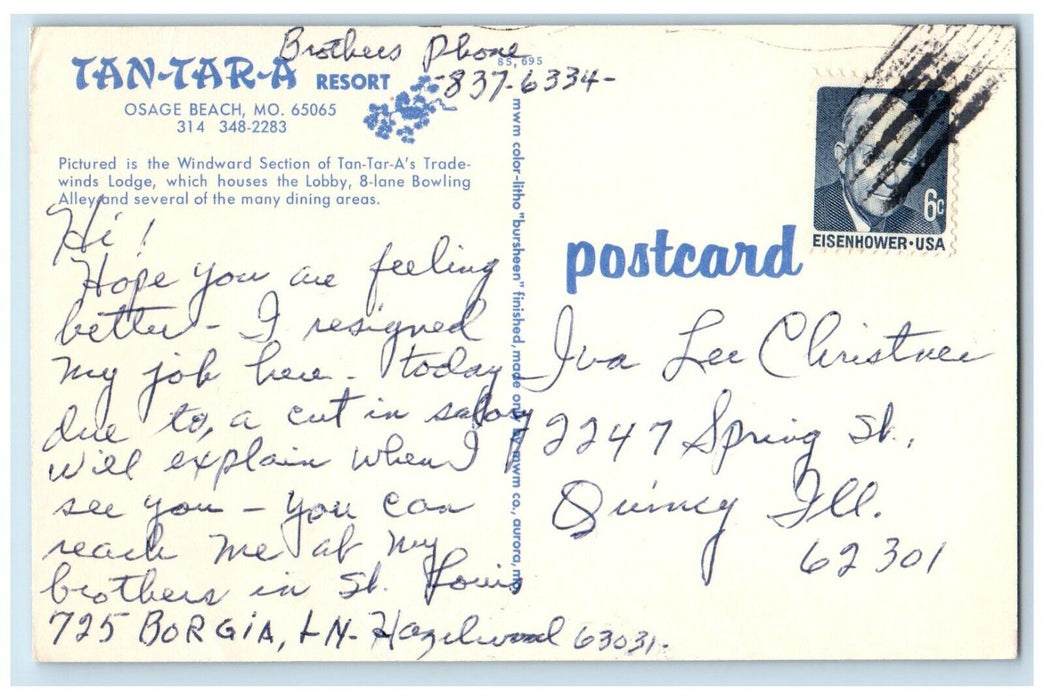 Brothers Phone
-837-6334-
TAN-TAR-A RESORT
OSAGE BEACH, MO. 65065
314 348-2283
Pictured is the Windward Section of Tan-Tar-A's Trade-
winds Lodge, which houses the Lobby, 8-lane Bowling
Alley and several of the many dining areas.
Hi!
Hope you are feeling
better - I resigned
my job here - today
due to, a cut in salary
will explain when I
see you - You can
reach me at my
brothers in St. Louis
725 BORGIA, LN - Hazelwood 63031.
85, 695
mwm color-litho "bursheen" finished, made only by mwm co., aurora, mo
6c
EISENHOWER·USA
postcard
Iva Lee Christner
2247 Spring St.,
Quincy Ill.
62301